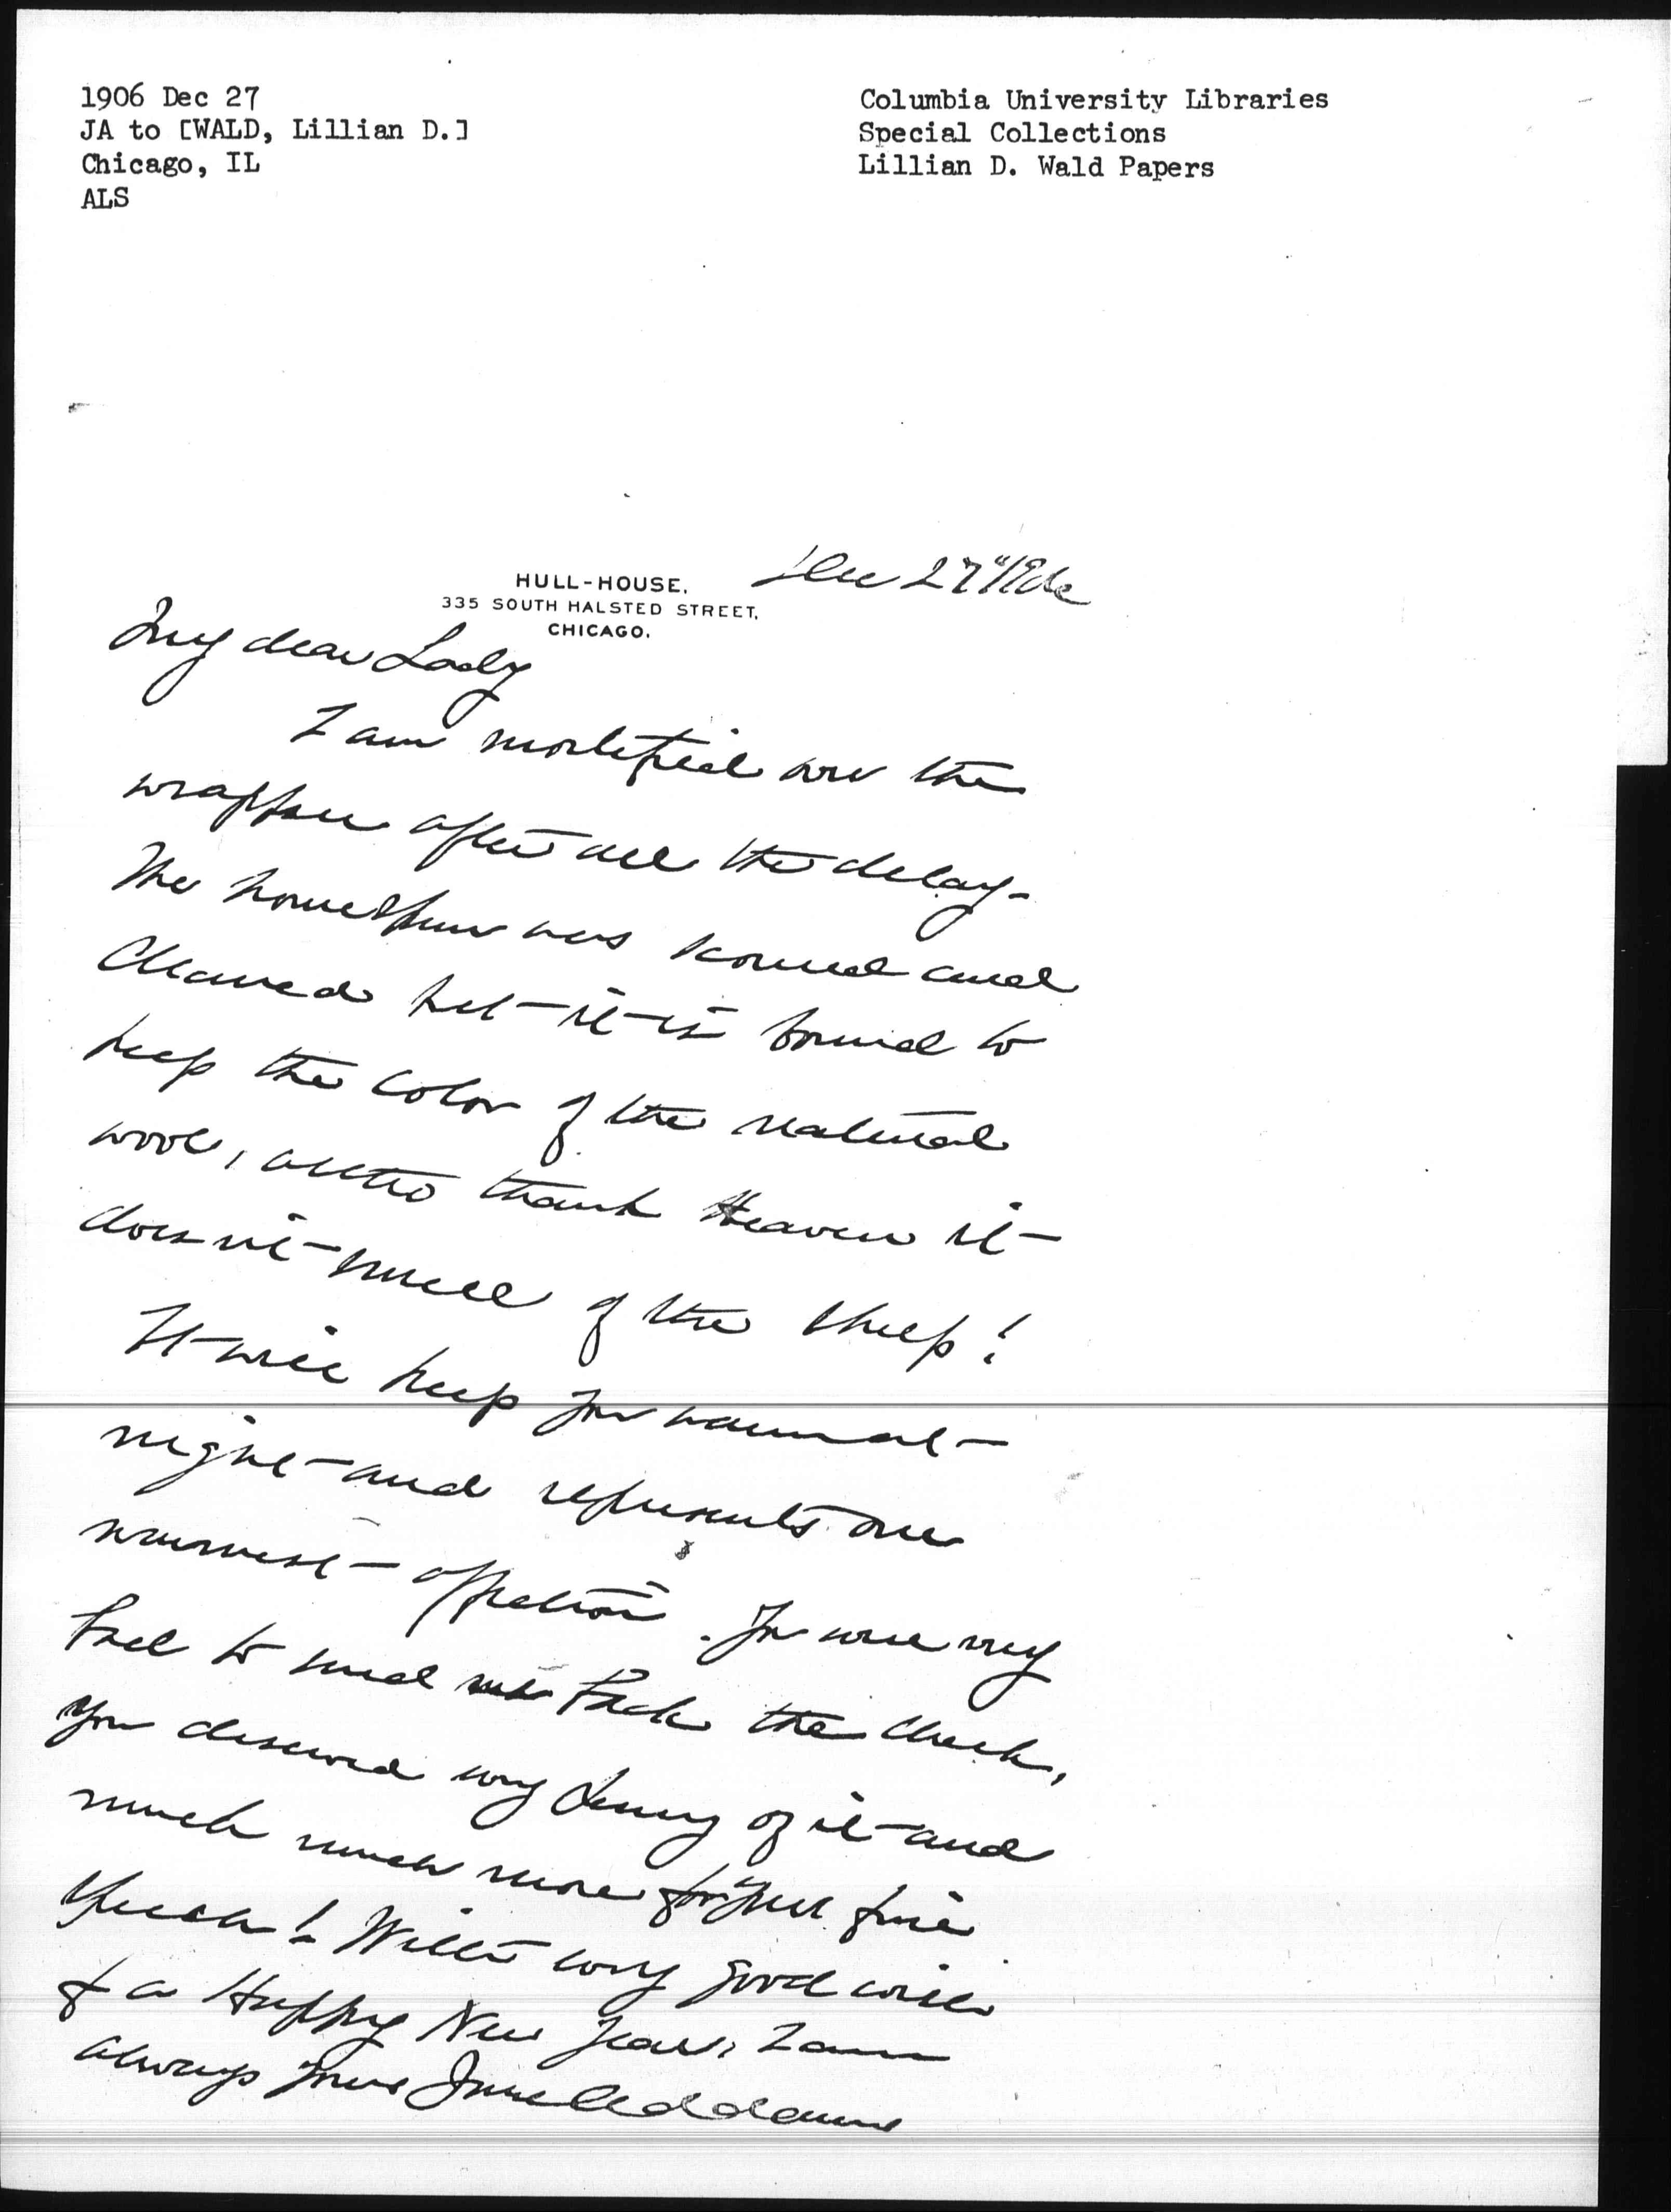 1906 Dec 27
JA to [WALD, Lillian D.]
Chicago, IL
ALS
Columbia University Libraries
Special Collections
Lillian D. Wald Papers
HULL-HOUSE.
335 SOUTH HALSTED STREET,
CHICAGO.
Dec 27" 1906
My dear Lady
I am mortified over the
wrapper after all the delay -
The homespun was scoured and
cleaned but it is bound to
keep the color of the natural
wool, altho thank Heaven it
doesn't smell of the sheep!
It will keep you warm at
night and represents our
warmest affection. You were very
good to send me back the check,
you deserved every penny of it and
much much more for your fine
speech! With every good wish
& a Happy New Year, I am
always yours Jane Addams